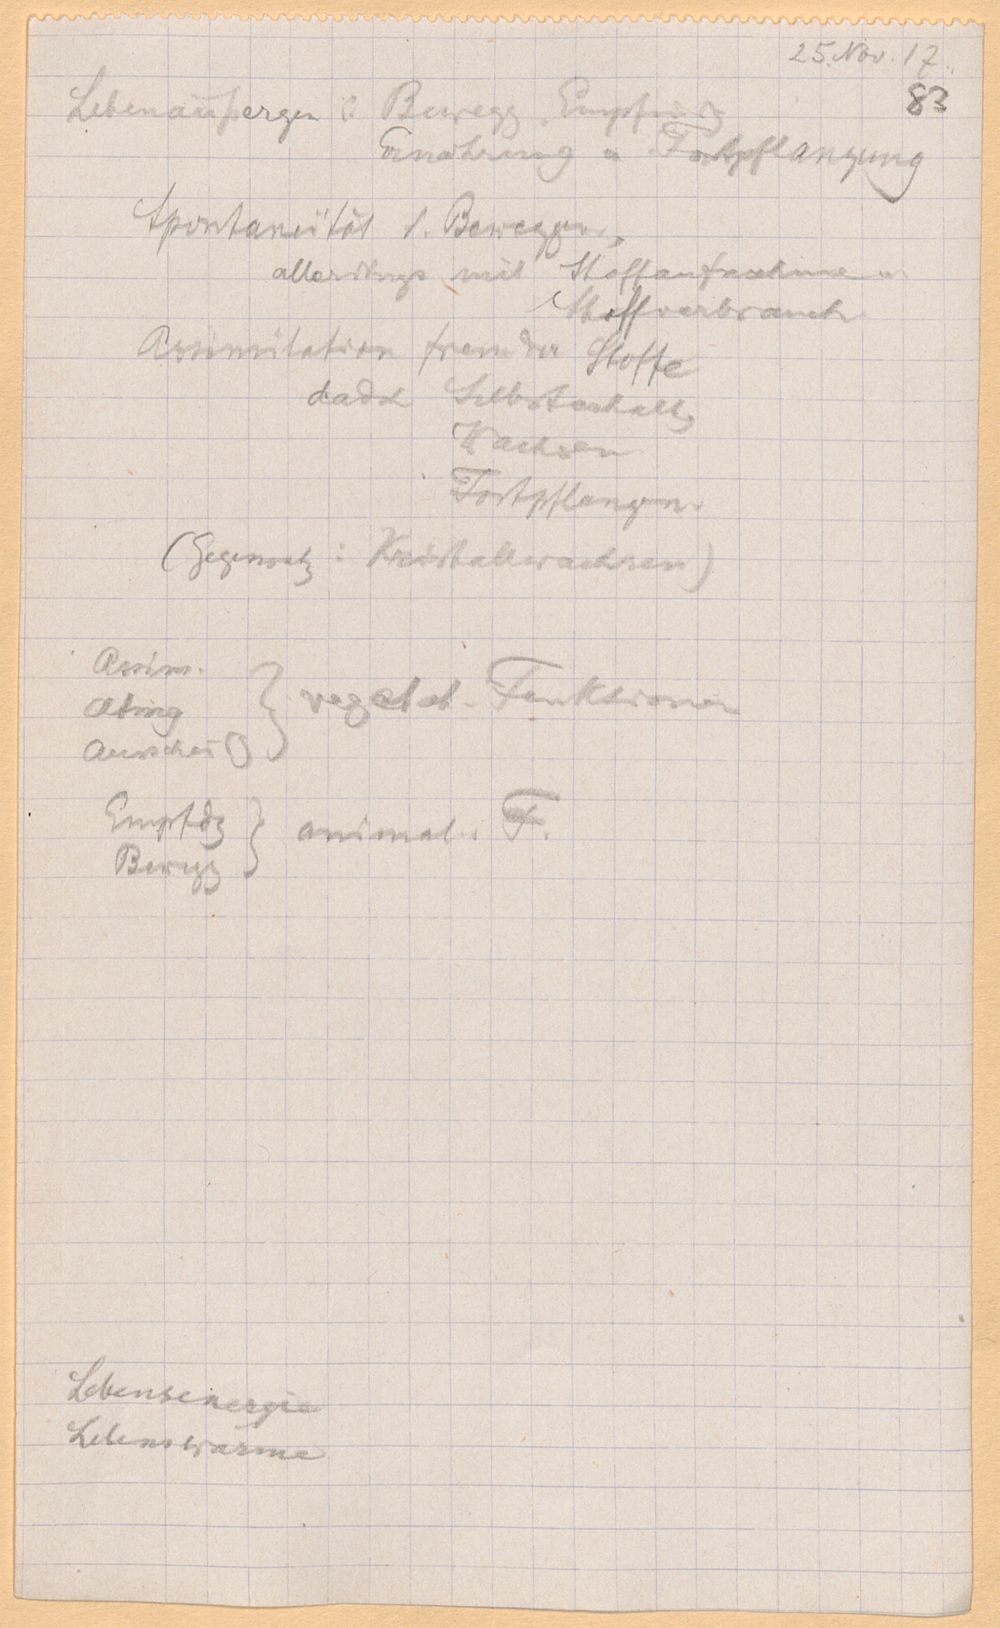 25. Nov. 17.
83
Lebensäußergen : Bewegg, Empfindg
Ernährung u Fortpflanzung
Spontaneität d. Beweggn,
allerdings mit Stoffaufnahme u.
Stoffverbrauch
Assimilation fremder Stoffe
dadch Selbsterhaltg
Wachsen
Fortpflanzen.
(Gegensatz : Kristallwachsen)
Assim.
Atmg
Ausscheidg
} vegetat. Funktionen
Empfdg
Bewegg
} animal. F.
Lebensenergie
Lebenswärme